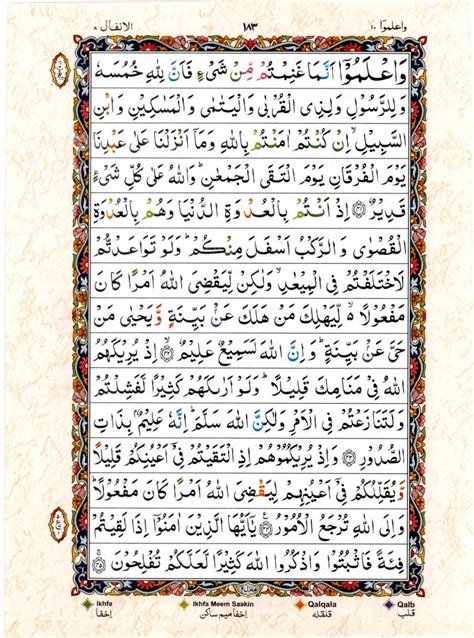 واعلموا ١٠
١٨٣
الانفال ٨
وَاعْلَمُوْٓا اَنَّمَا غَنِمْتُمْ مِّنْ شَيْءٍ فَاَنَّ لِلّٰهِ خُمُسَهٗ
وَلِلرَّسُوْلِ وَلِذِي الْقُرْبٰى وَالْيَتٰمٰى وَالْمَسٰكِيْنِ وَابْنِ
السَّبِيْلِ ۙ اِنْ كُنْتُمْ اٰمَنْتُمْ بِاللّٰهِ وَمَآ اَنْزَلْنَا عَلٰى عَبْدِنَا
يَوْمَ الْفُرْقَانِ يَوْمَ الْتَقَى الْجَمْعٰنِ ؕ وَاللّٰهُ عَلٰى كُلِّ شَيْءٍ
قَدِيْرٌ ﴿٤١﴾ اِذْ اَنْتُمْ بِالْعُدْوَةِ الدُّنْيَا وَهُمْ بِالْعُدْوَةِ
الْقُصْوٰى وَالرَّكْبُ اَسْفَلَ مِنْكُمْ ؕ وَلَوْ تَوَاعَدْتُّمْ
لَاخْتَلَفْتُمْ فِي الْمِيْعٰدِ ۙ وَلٰكِنْ لِّيَقْضِيَ اللّٰهُ اَمْرًا كَانَ
مَفْعُوْلًا ۙ لِّيَهْلِكَ مَنْ هَلَكَ عَنْۢ بَيِّنَةٍ وَّيَحْيٰى مَنْ
حَيَّ عَنْۢ بَيِّنَةٍ ؕ وَاِنَّ اللّٰهَ لَسَمِيْعٌ عَلِيْمٌ ﴿٤٢﴾ اِذْ يُرِيْكَهُمُ
اللّٰهُ فِيْ مَنَامِكَ قَلِيْلًا ؕ وَلَوْ اَرٰىكَهُمْ كَثِيْرًا لَّفَشِلْتُمْ
وَلَتَنَازَعْتُمْ فِي الْاَمْرِ وَلٰكِنَّ اللّٰهَ سَلَّمَ ؕ اِنَّهٗ عَلِيْمٌۢ بِذَاتِ
الصُّدُوْرِ ﴿٤٣﴾ وَاِذْ يُرِيْكُمُوْهُمْ اِذِ الْتَقَيْتُمْ فِيْٓ اَعْيُنِكُمْ قَلِيْلًا
وَّيُقَلِّلُكُمْ فِيْٓ اَعْيُنِهِمْ لِيَقْضِيَ اللّٰهُ اَمْرًا كَانَ مَفْعُوْلًا ؕ
وَاِلَى اللّٰهِ تُرْجَعُ الْاُمُوْرُ ﴿٤٤﴾ يٰٓاَيُّهَا الَّذِيْنَ اٰمَنُوْٓا اِذَا لَقِيْتُمْ
فِئَةً فَاثْبُتُوْا وَاذْكُرُوا اللّٰهَ كَثِيْرًا لَّعَلَّكُمْ تُفْلِحُوْنَ ﴿٤٥﴾
Ikhfa Ikhfa Meem Saakin Qalqala Qalb
اخفا اخفا میم ساکن قلقلہ قلب